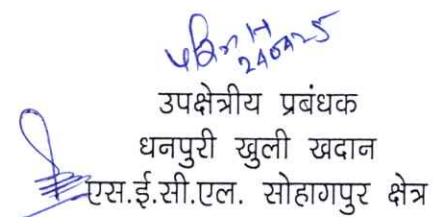 उपक्षेत्रीय प्रबंधक
धनपुरी खुली खदान
एस.ई.सी.एल. सोहागपुर क्षेत्र